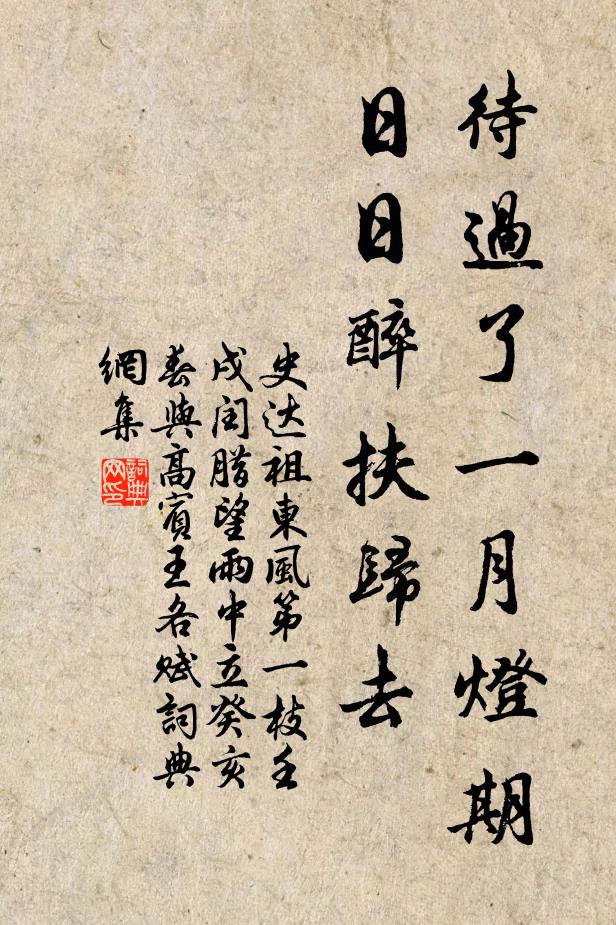 待過了一月燈期
日日醉扶歸去
史达祖東風第一枝壬
戌闰腊望雨中立癸亥
春與高賓王各赋詞典
網集
詞典網印